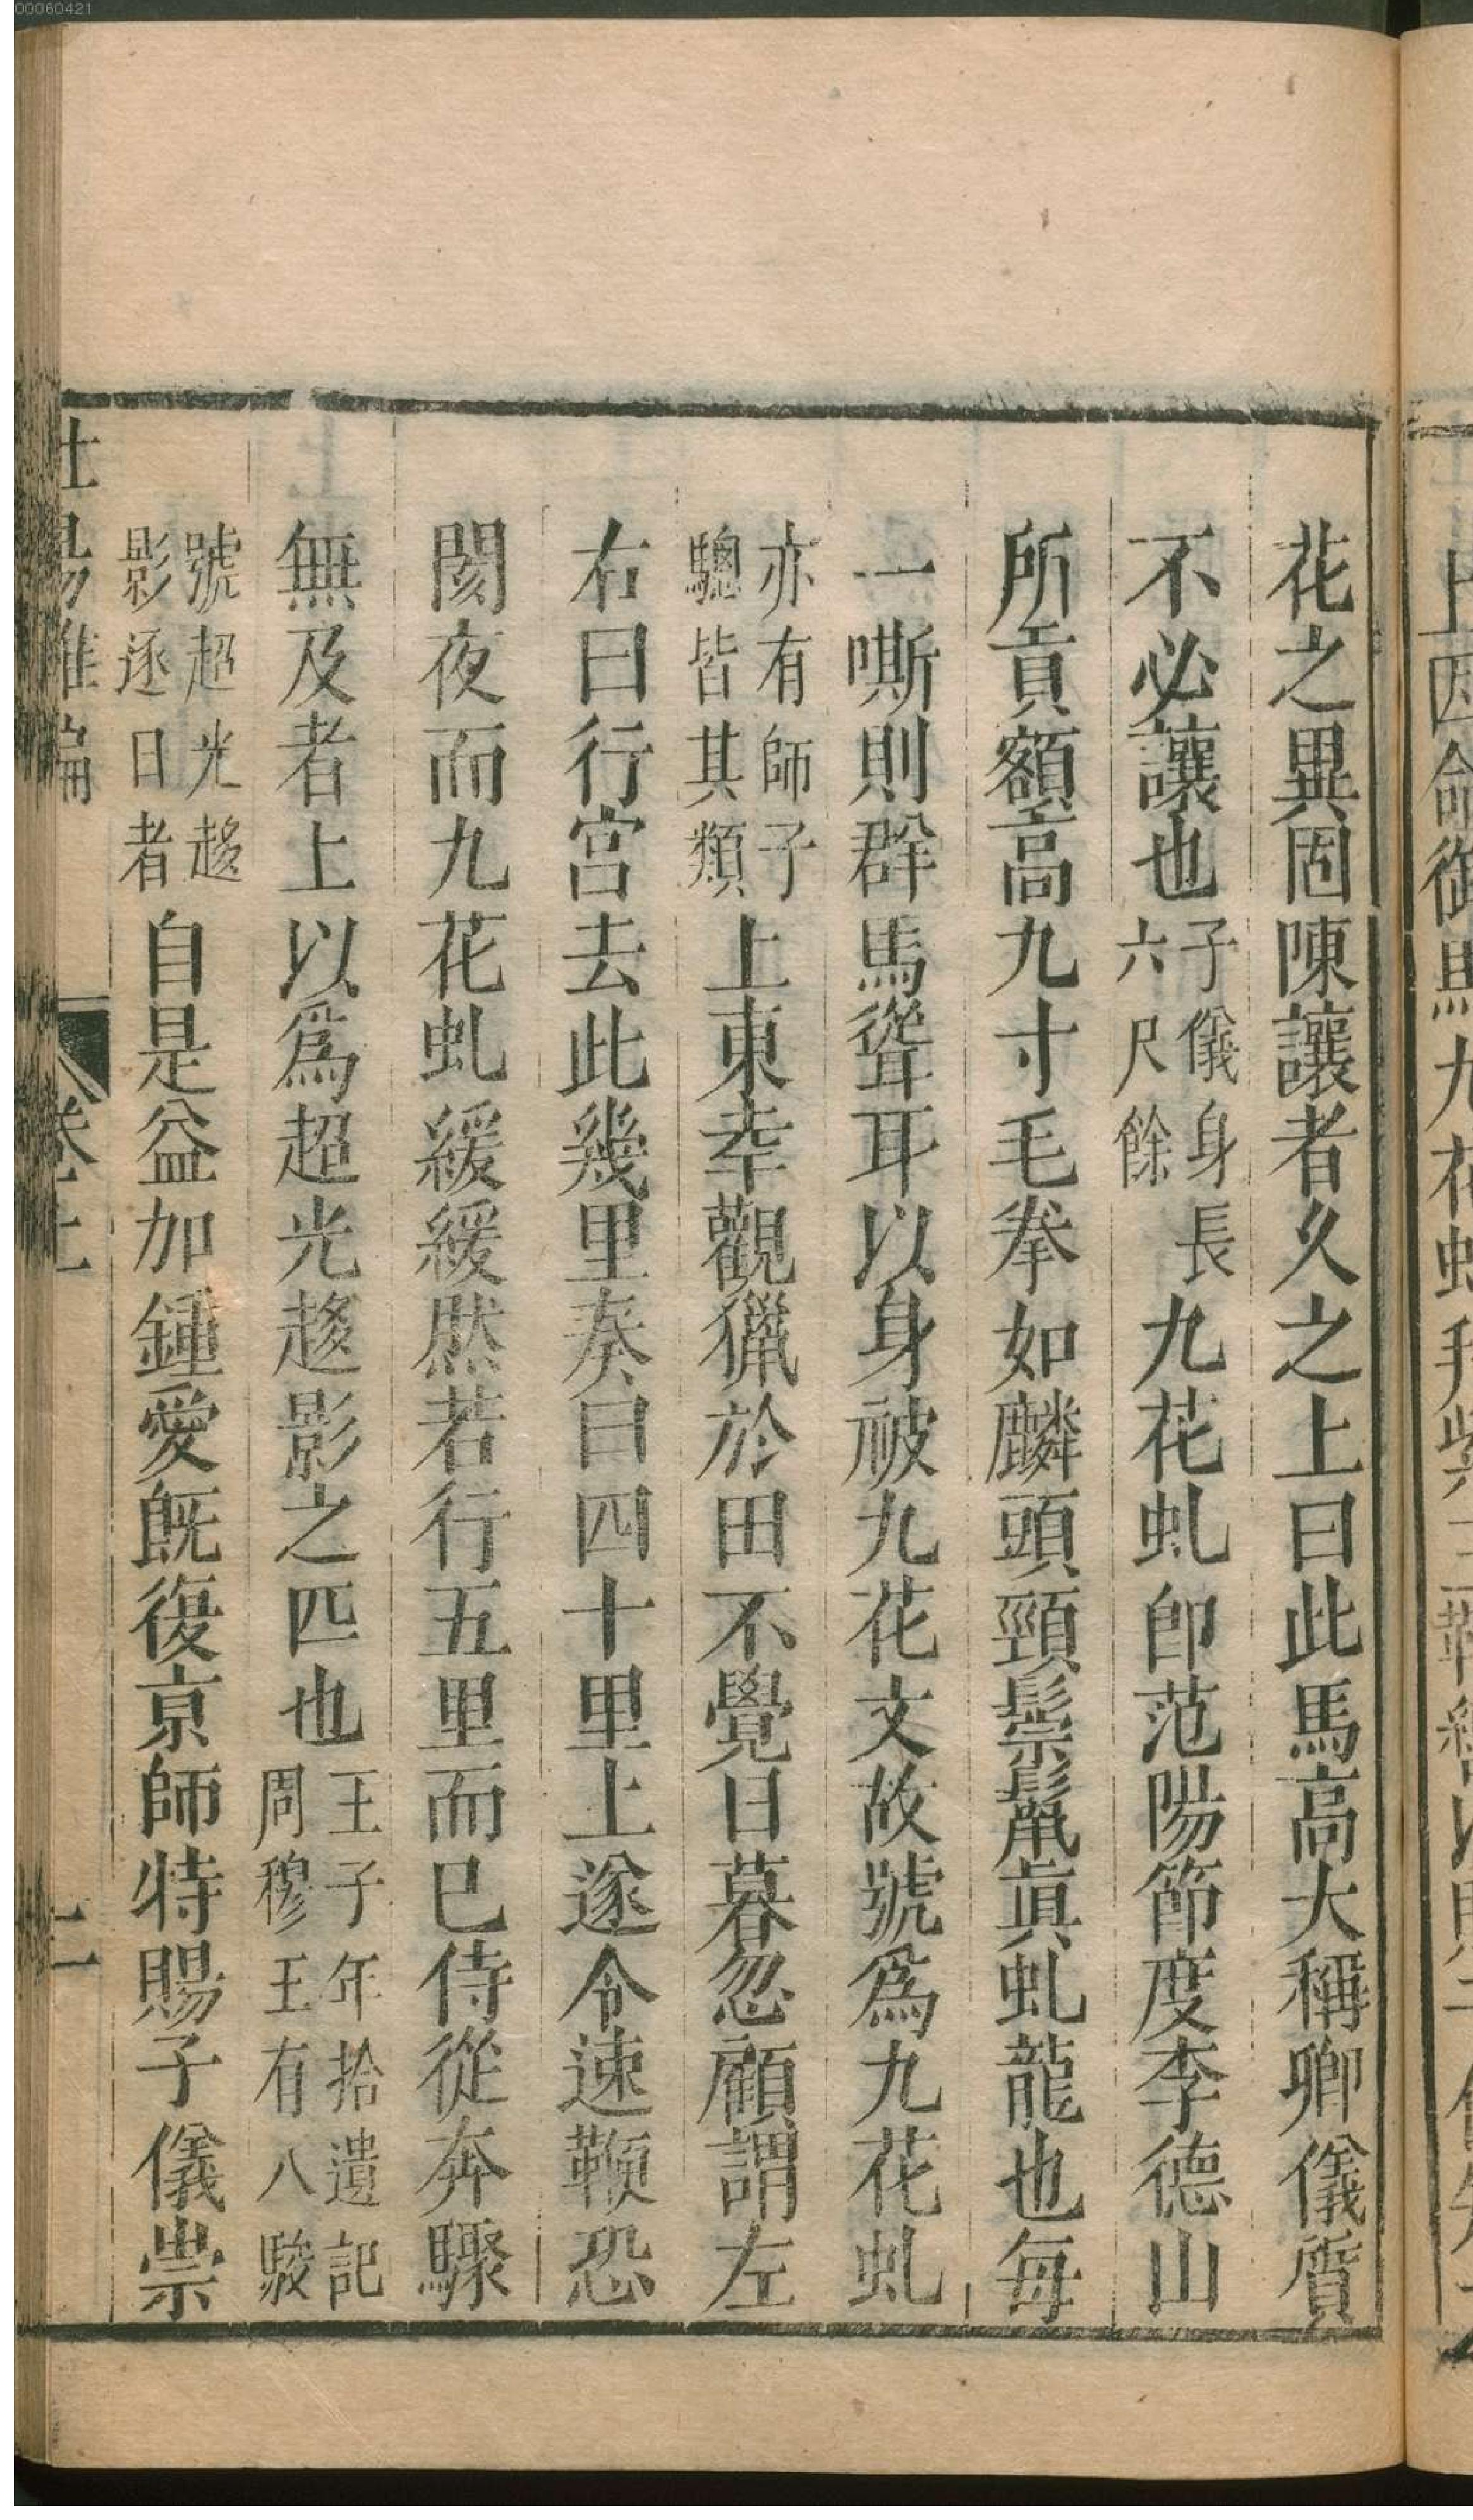 00060421
花之異固陳讓者久之上曰此馬高大稱卿儀質
不必讓也子儀身長六尺餘九花虬卽范陽節度李德山
所貢額高九寸毛拳如麟頭頸鬃鬣眞虬龍也每
一嘶則群馬聳耳以身被九花文故號爲九花虬
亦有師子驄皆其類上東幸觀獵於田不覺日暮忽顧謂左
右曰行宫去此幾里奏曰四十里上遂令速鞭恐
閡夜而九花虬緩緩然若行五里而已侍從奔驟
無及者上以爲超光趍影之匹也王子年拾遺記周穆王有八駿
號超光趍影逐日者自是益加鍾愛旣復京師特賜子儀崇